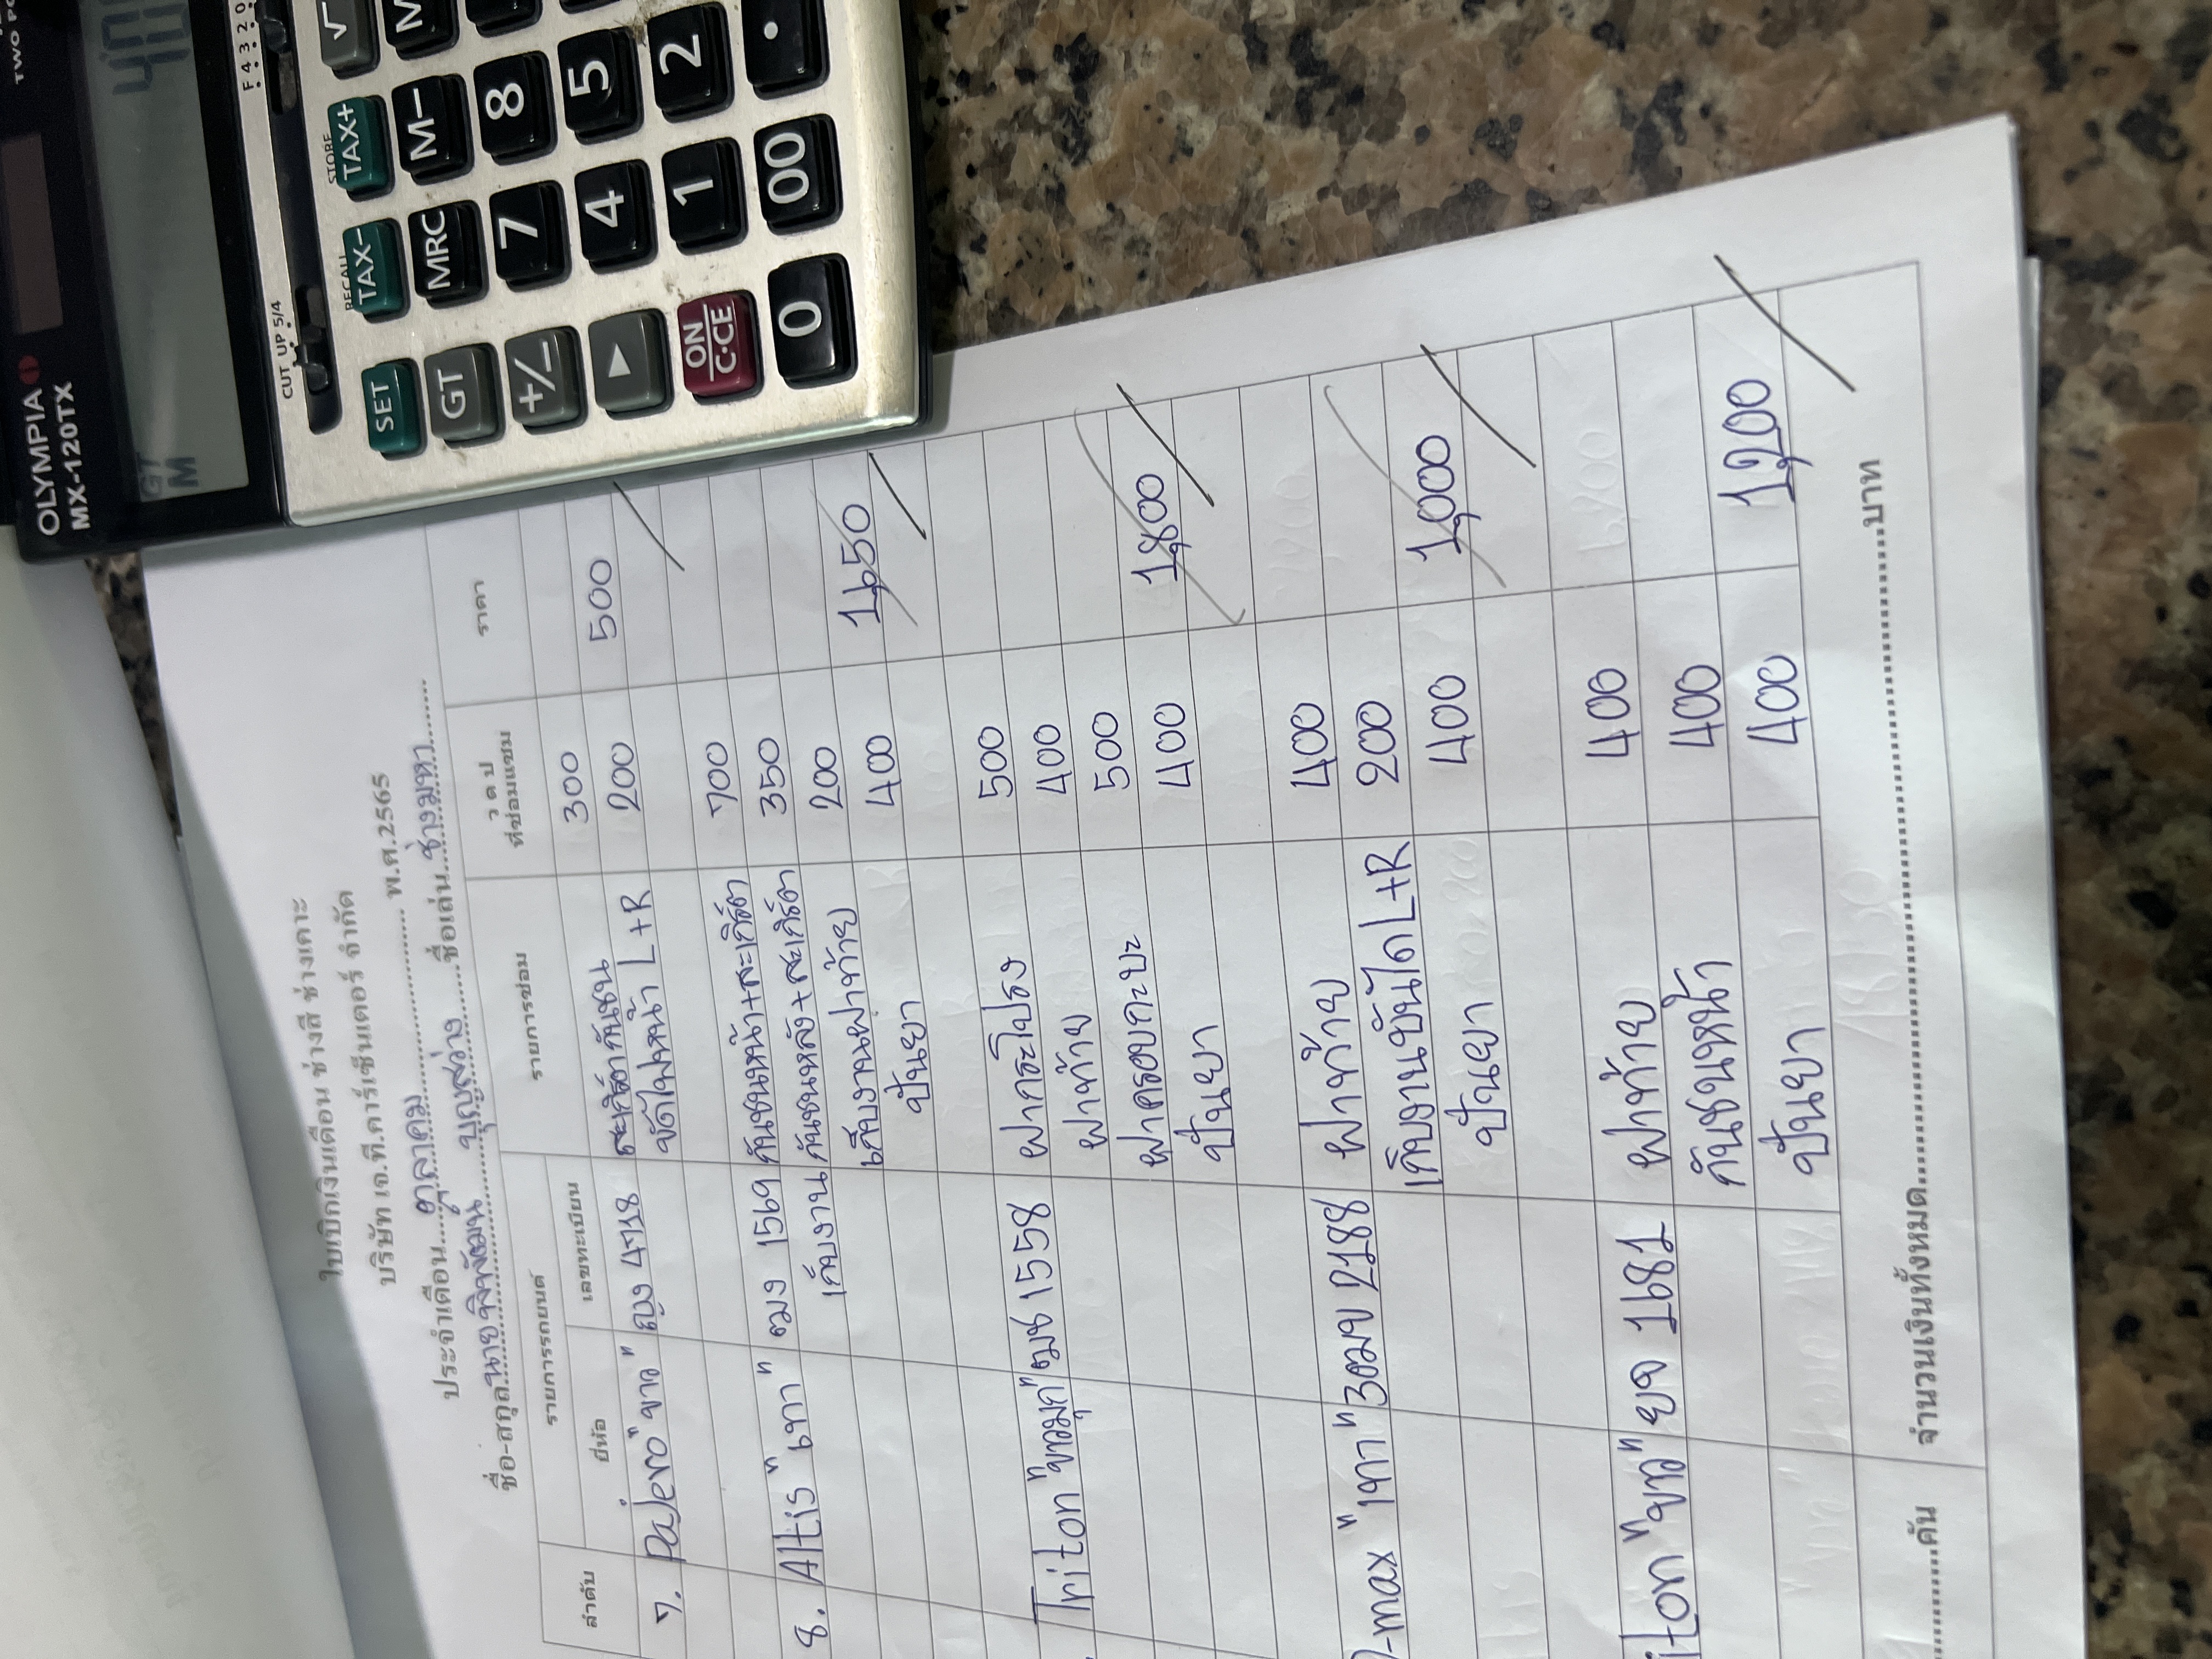 ใบเบิกเงินเดือน ช่างสี ช่างเคาะ
บริษัท เจ.ที.คาร์เซ็นเตอร์ จำกัด
ประจำเดือน....ตุลาคม.... พ.ศ.2565
ชื่อ-สกุล.นายจิรพัฒน์ บุญสว่าง....ชื่อเล่น..ช่างมหา....
ลำดับ รายการรถยนต์ รายการซ่อม ว ด ป ราคา
ยี่ห้อ เลขทะเบียน ที่ซ่อมแซม
7. Pajero "ขาว" 4718 สะเก็ดกันชน 300
ขัดไฟหน้า L+R 200 500
8. Altis "เทา" ฆง 1569 กันชนหน้า+สะเก็ด 700
เก็บงาน กันชนหลัง+สะเก็ด 350
เก็บงานฝาท้าย 200
ปั่นยา 400 1,650
Triton "ขาวมุก" ฒช 1558 ฝากระโปรง 500
ฝาท้าย 400
ฝาครอบกะบะ 500
ปั่นยา 400 1,800
D-max "เทา" 3ฒฆ 2188 ฝาท้าย 400
เก็บงานบันได L+R 200
ปั่นยา 400 1,000
iton "ขาว" ยจ 1681 ฝาท้าย 400
กันชนหน้า 400
ปั่นยา 400 1,200
....คัน จำนวนเงินทั้งหมด....บาท
OLYMPIA
MX-120TX
TWO PO
GT
M
CUT UP 5/4
F 4 3 2 0
RECALL STORE
SET TAX- TAX+ √
GT MRC M- M
+/- 7 8
▶ 4 5
ON
C·CE 1 2
0 00 .